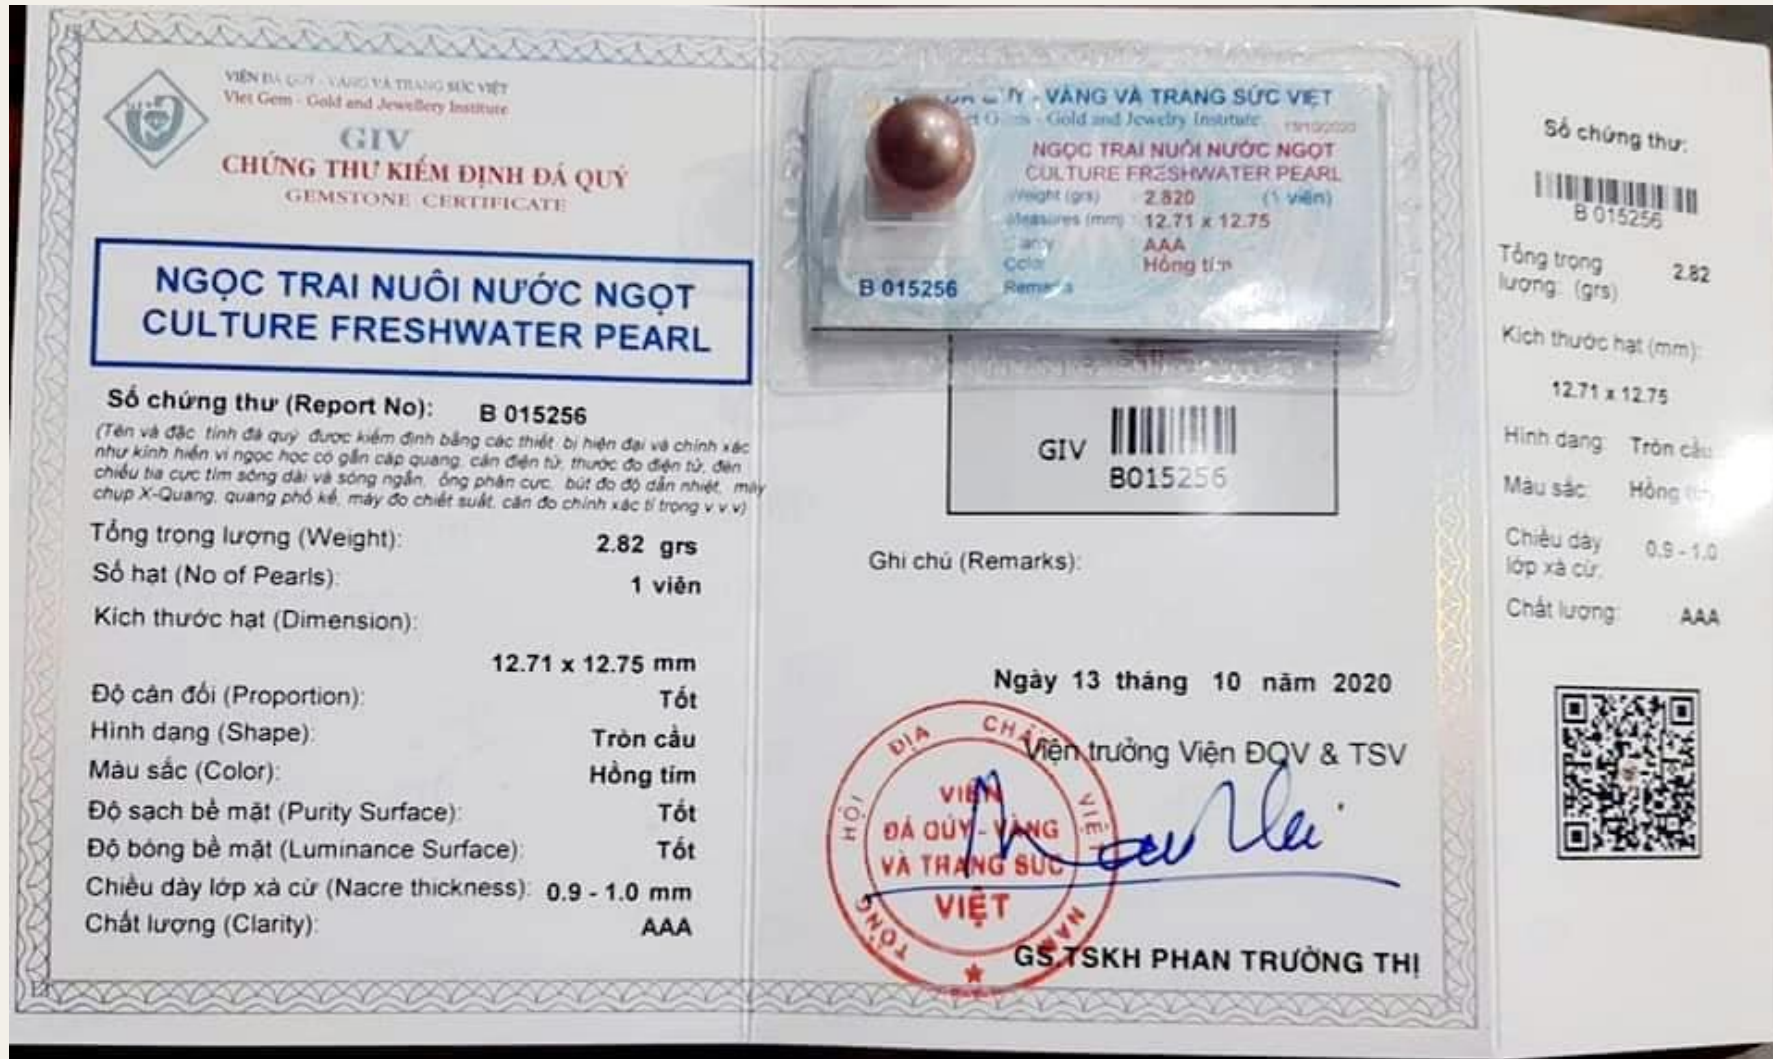 VIỆN ĐÁ QUÝ - VÀNG VÀ TRANG SỨC VIỆT
Viet Gem - Gold and Jewellery Institute
GIV
CHỨNG THƯ KIỂM ĐỊNH ĐÁ QUÝ
GEMSTONE CERTIFICATE
NGỌC TRAI NUÔI NƯỚC NGỌT
CULTURE FRESHWATER PEARL
Số chứng thư (Report No): B 015256
(Tên và đặc tính đá quý được kiểm định bằng các thiết bị hiện đại và chính xác
như kính hiển vi ngọc học có gắn cáp quang, cân điện tử, thước đo điện tử, đèn
chiếu tia cực tím sóng dài và sóng ngắn, ống phân cực, bút đo độ dẫn nhiệt, máy
chụp X-Quang, quang phổ kế, máy đo chiết suất, cân đo chính xác tỉ trọng v.v.v)
Tổng trọng lượng (Weight): 2.82 grs
Số hạt (No of Pearls): 1 viên
Kích thước hạt (Dimension):
12.71 x 12.75 mm
Độ cân đối (Proportion): Tốt
Hình dạng (Shape): Tròn cầu
Màu sắc (Color): Hồng tím
Độ sạch bề mặt (Purity Surface): Tốt
Độ bóng bề mặt (Luminance Surface): Tốt
Chiều dày lớp xà cừ (Nacre thickness): 0.9 - 1.0 mm
Chất lượng (Clarity): AAA
QUÝ - VÀNG VÀ TRANG SỨC VIỆT
- Gold and Jewelry Institute
13/10/2020
NGỌC TRAI NUÔI NƯỚC NGỌT
CULTURE FRESHWATER PEARL
Weight (grs) 2.820 (1 viên)
Measures (mm) 12.71 x 12.75
AAA
Color Hồng tím
B 015256 Remarks
GIV
B015256
Ghi chú (Remarks):
Ngày 13 tháng 10 năm 2020
Viện trưởng Viện ĐQV & TSV
TỔNG HỘI ĐỊA CHẤT VIỆT NAM
VIỆN
ĐÁ QÚY - VÀNG
VÀ TRANG SỨC
VIỆT
GS.TSKH PHAN TRƯỜNG THỊ
Số chứng thư:
B 015256
Tổng trọng 2.82
lượng: (grs)
Kích thước hạt (mm):
12.71 x 12.75
Hình dạng: Tròn cầu
Màu sắc: Hồng tím
Chiều dày 0.9 - 1.0
lớp xà cừ:
Chất lượng: AAA